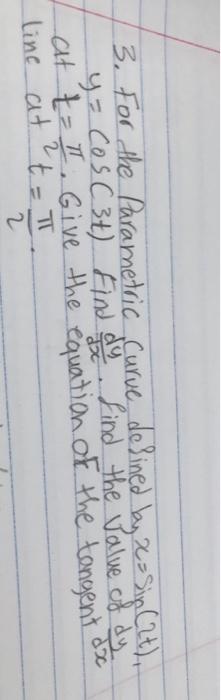 3. For the Parametric Curve defined by x=Sin(2t),
y = Cos(3t) Find dy/dx. find the Value of dy/dx
at t = π/2. Give the equation of the tangent
line at t = π/2.